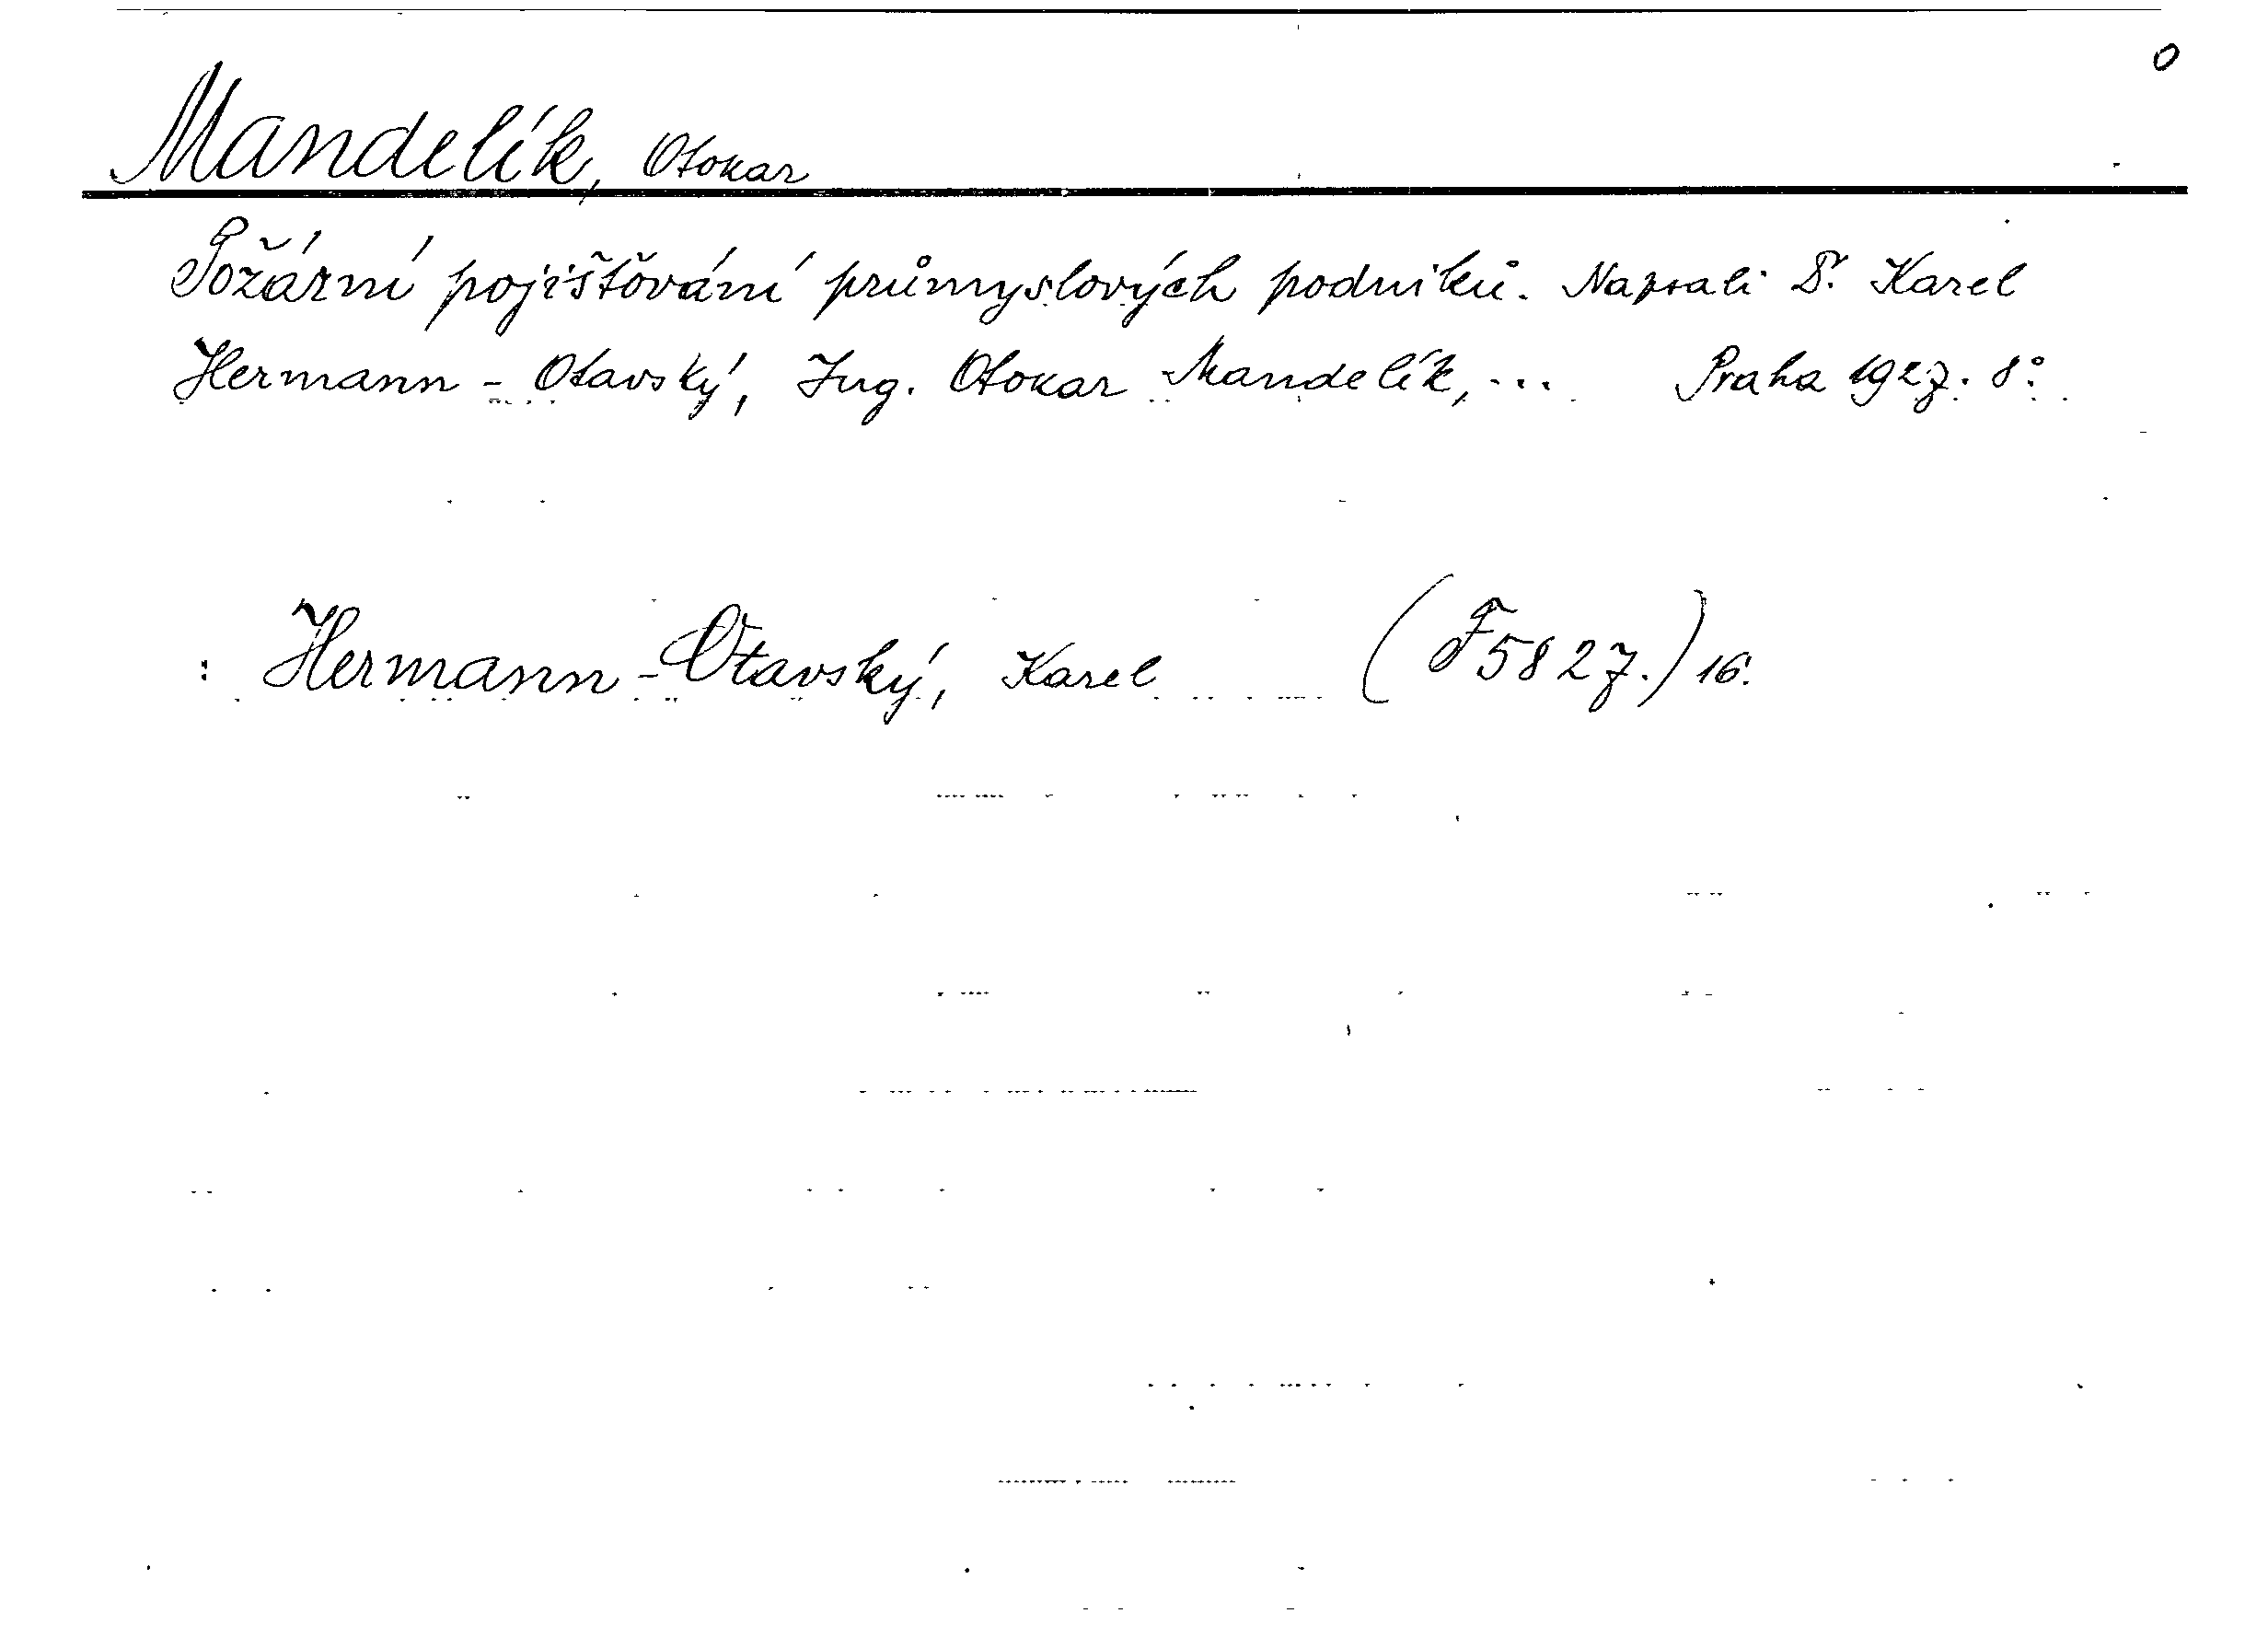 0
Mandelík, Otokar
Požární pojišťování průmyslových podniků. Napsali Dr. Karel
Hermann - Otavský, Ing. Otokar Mandelík, ... Praha 1927. 8°.
: Hermann - Otavský, Karel (F 5827.) 16.